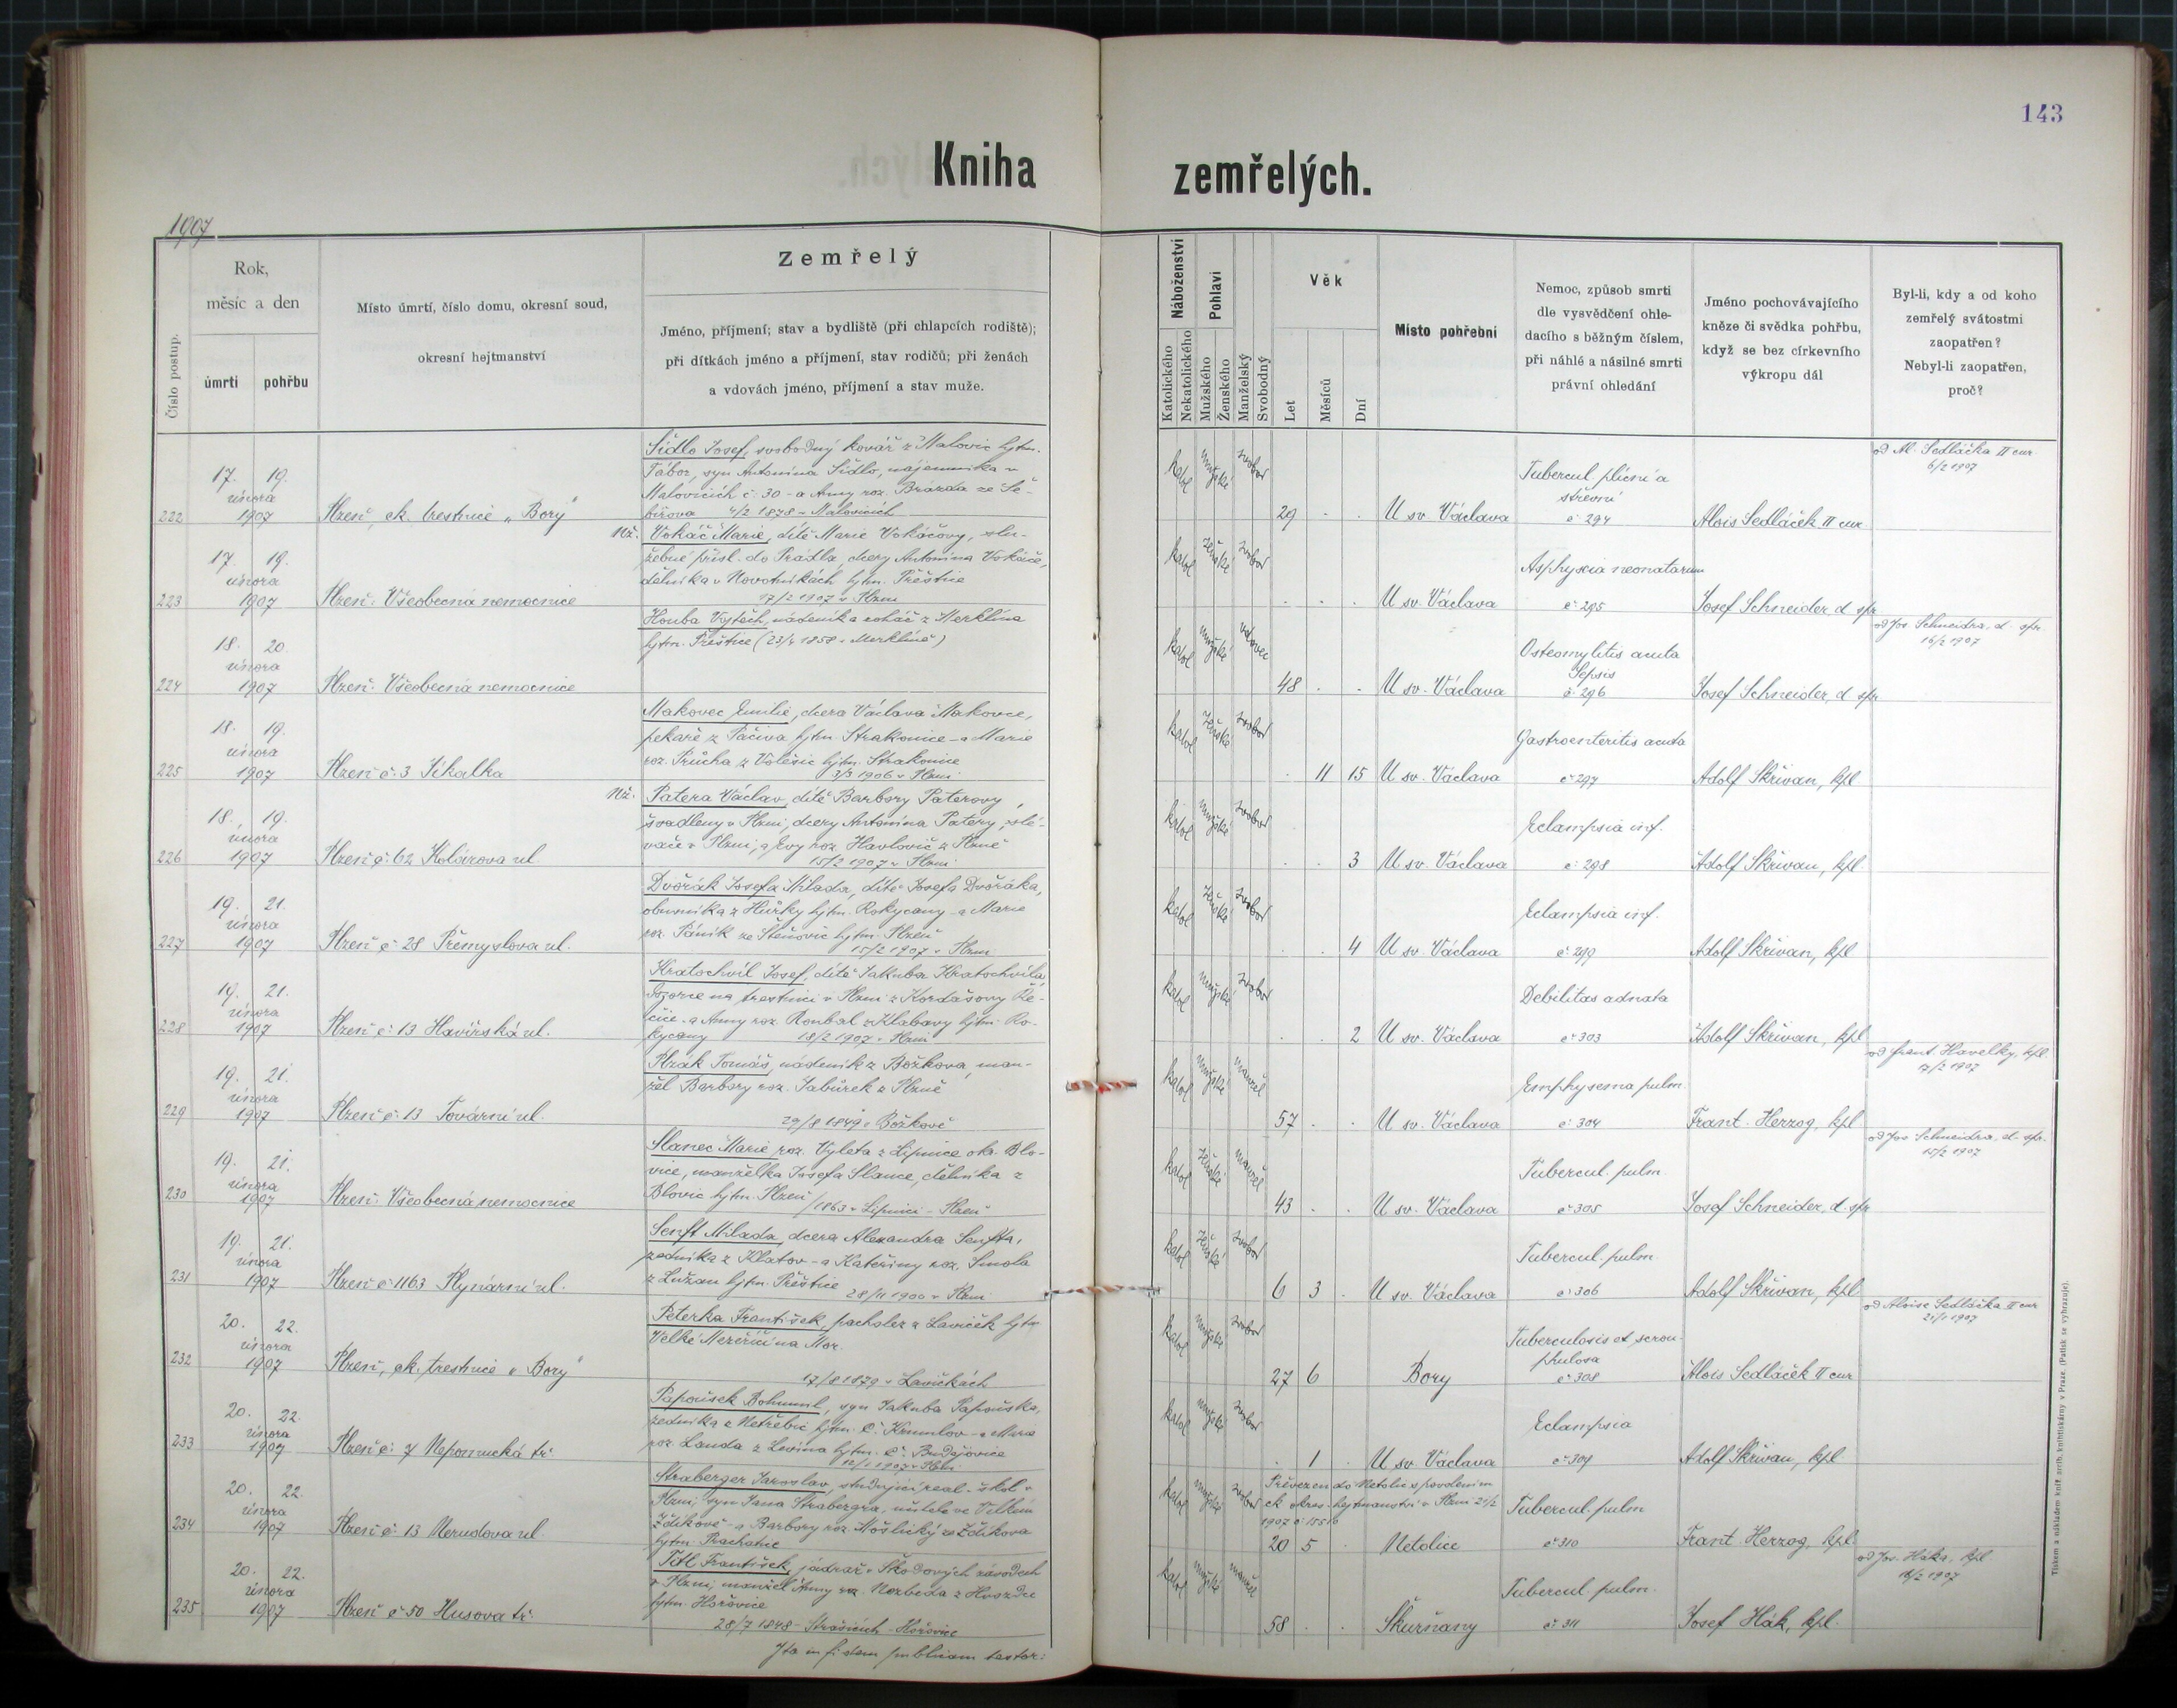 143
Kniha zemřelých.
1907
Číslo postup.
Rok,
měsíc a den
úmrtí
pohřbu
Místo úmrtí, číslo domu, okresní soud,
okresní hejtmanství
Zemřelý
Jméno, příjmení; stav a bydliště (při chlapcích rodiště);
při dítkách jméno a příjmení, stav rodičů; při ženách
a vdovách jméno, příjmení a stav muže.
Náboženství
Katolického
Nekatolického
Pohlaví
Mužského
Ženského
Manželský
Svobodný
Věk
Let
Měsíců
Dní
Místo pohřební
Nemoc, způsob smrti
dle vysvědčení ohle-
dacího s běžným číslem,
při náhlé a násilné smrti
právní ohledání
Jméno pochovávajícího
kněze či svědka pohřbu,
když se bez církevního
výkropu dál
Byl-li, kdy a od koho
zemřelý svátostmi
zaopatřen?
Nebyl-li zaopatřen,
proč?
222
17. 19.
února
1907
Plzeň, ck. trestnice „Bory"
Šídlo Josef, svobodný kovář z Malovic hjtm.
Tábor, syn Antonína Šídlo, nájemníka v
Malovicích č. 30 - a Anny roz. Brázda ze Še-
bířova 4/2 1878 v Malovicích
katol mužské svobod
29 . .
U sv. Václava
Tubercul plicní a
střevní
č 294
Alois Sedláček II cur
od Al. Sedláčka II cur
6/2 1907
223
17. 19.
února
1907
Plzeň: Všeobecná nemocnice
Nž. Vokáč Marie, dítě Marie Vokáčovy, slu-
žebné přísl. do Prádla, dcery Antonína Vokáče,
dělníka v Novotníkách hjtm. Přeštice
17/2 1907 v Plzni
katol ženské svobod
. . .
U sv. Václava
Asphyxia neonatorum
č 295
Josef Schneider, d. spr
224
18. 20.
února
1907
Plzeň: Všeobecná nemocnice
Houba Vojtěch, nádeník a roháč z Merklína
hjtm. Přeštice (23/4 1858 v Merklíně)
katol mužské vdovec
48 . .
U sv. Václava
Osteomylitis acuta
Sepsis
č 296
Josef Schneider, d spr
od Jos. Schneidra, d. spr.
16/2 1907
225
18. 19.
února
1907
Plzeň č. 3 Jikalka
Makovec Emilie, dcera Václava Makovce,
pekaře z Pačiva hjtm Strakonice - a Marie
roz. Průcha z Volešic hjtm. Strakonice
3/3 1906 v Plzni
katol ženské svobod
. 11 15
U sv. Václava
Gastroenteritis acuta
č 297
Adolf Skřivan, kpl
226
18. 19.
února
1907
Plzeň č. 62 Kolárova ul.
Nž. Patera Václav, dítě Barbory Paterovy,
švadleny v Plzni, dcery Antonína Patery, slé-
vače v Plzni, a Evy roz. Havlovic z Plzně
15/2 1907 v Plzni
katol mužské svobod
. . 3
U sv. Václava
Eclampsia inf.
č 298
Adolf Skřivan, kpl.
227
19. 21.
února
1907
Plzeň č. 28 Přemyslova ul.
Dvořák Josefa Milada, dítě Josefa Dvořáka,
obuvníka z Hůrky hjtm. Rokycany - a Marie
roz. Páník ze Štěňovic hjtm. Plzeň
15/2 1907 v Plzni
katol ženské svobod
. . 4
U sv. Václava
Eclampsia inf.
č 299
Adolf Skřivan, kpl
228
19. 21.
února
1907
Plzeň č. 13 Havířská ul.
Kratochvíl Josef, dítě Jakuba Kratochvíla,
dozorce na trestnici v Plzni z Kordašovy Ře-
čice - a Anny roz. Roubal z Klabavy hjtm. Ro-
kycany 18/2 1907 v Plzni
katol mužské svobod
. . 2
U sv. Václava
Debilitas adnata
č 303
Adolf Skřivan, kpl
229
19. 21.
února
1907
Plzeň č. 13 Tovární ul.
Plzák Tomáš, nádeník z Božkova, man-
žel Barbory roz. Jabůrek z Plzně
29/8 1849 v Božkově
katol mužské manžel
57 . .
U sv. Václava
Emphysema pulm.
č 304
Frant. Herzog, kpl
od Frant. Havelky, kpl.
17/2 1907
230
19. 21.
února
1907
Plzeň: Všeobecná nemocnice
Slanec Marie, roz. Výleta z Lipnice okr. Blo-
vice, manželka Josefa Slance, dělníka z
Blovic hjtm. Plzeň /1863 v Lipnici - Plzeň
katol ženské manžel
43 . .
U sv. Václava
Tubercul. pulm.
č 305
Josef Schneider, d. spr
od Jos Schneidra, d. spr.
15/2 1907
231
19. 21.
února
1907
Plzeň č 1163 Plynární ul.
Senft Milada, dcera Alexandra Senfta,
zedníka z Klatov - a Kateřiny roz. Smola
z Lužan hjtm. Přeštice 28/11 1900 v Plzni
katol ženské svobod
6 3 .
U sv. Václava
Tubercul. pulm.
č 306
Adolf Skřivan, kpl
232
20. 22.
února
1907
Plzeň, ck. trestnice „Bory"
Peterka František, pacholek z Laviček hjtm
Velké Meziříčí na Mor.
17/8 1879 v Lavičkách
katol mužské svobod
27 6
Bory
Tuberculosis et scrou-
phulosa
č 308
Alois Sedláček II cur
od Aloise Sedláčka II cur
21/1 1907
233
20. 22.
února
1907
Plzeň č. 7 Nepomucká tř.
Papoušek Bohumil, syn Jakuba Papouška,
zedníka z Netřebic hjtm. Č. Krumlov - a Marie
roz. Landa z Levína hjtm. Č. Budějovice
12/1 1907 v Plzni
katol mužské svobod
. 1 .
U sv. Václava
Eclampsia
č 309
Adolf Skřivan, kpl
234
20. 22.
února
1907
Plzeň č. 13 Nerudova ul.
Straberger Jaroslav, studující real. škol v
Plzni, syn Jana Strabergra, učitele ve Velkém
Zdíkově - a Barbory roz. Hošlický ze Zdíkova
hjtm. Prachatic
katol mužské svobod
Převezen do Netolic s povolením
ck okres. hejtmanství v Plzni 21/2
1907 č 15516
20 5 .
Netolice
Tubercul. pulm
č 310
Frant. Herzog, kpl.
235
20. 22.
února
1907
Plzeň č 50 Husova tř.
Titl František, jádrař v Škodových závodech
v Plzni, manžel Anny roz. Nozbeda z Hvozdce
hjtm. Hořovice
28/7 1848 - Strašicích - Hořovice
katol mužské manžel
58 . .
Skurňany
Tubercul. pulm.
č 311
Josef Hák, kpl.
od Jos. Háka, kpl
16/2 1907
Ita in fidem publicam testor:
Tiskem a nákladem kníž. arcib. knihtiskárny v Praze. (Patisk se vyhrazuje).